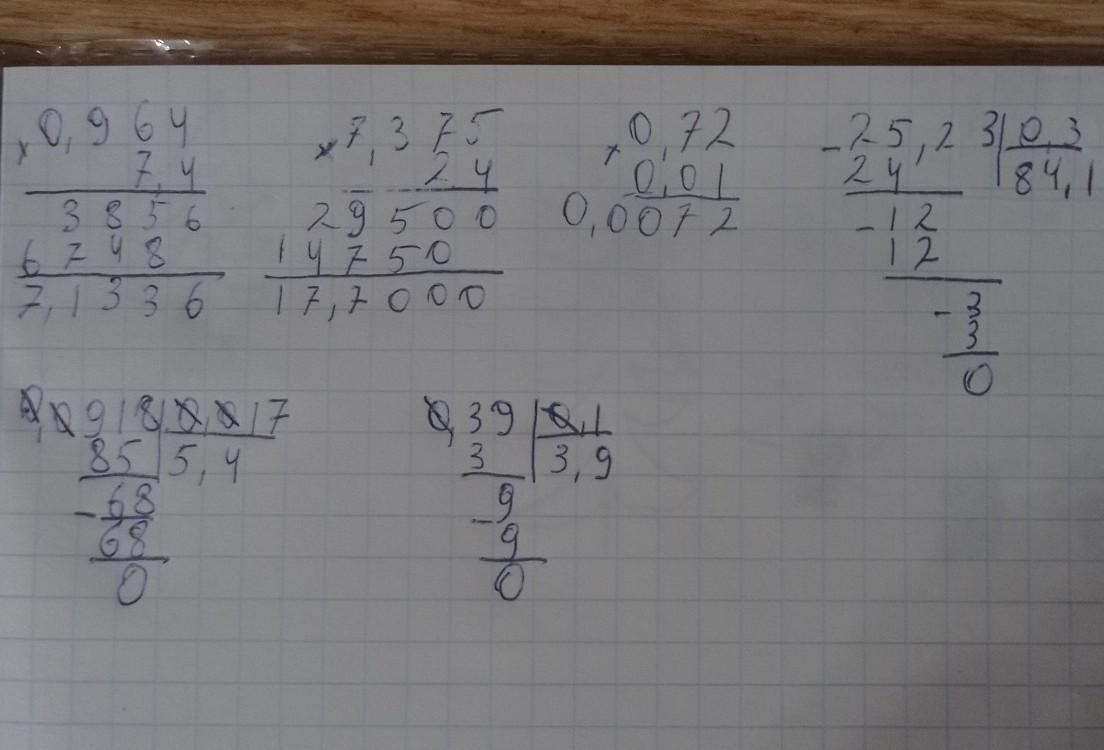 × 0,964
7,4
3856
6748
7,1336
× 7,375
24
29500
14750
17,7000
× 0,72
0,01
0,0072
- 25,23 | 0,3
24 84,1
- 12
12
- 3
3
0
0,0918 | 0,017
85 5,4
- 68
68
0
0,39 | 0,1
3 3,9
- 9
9
0